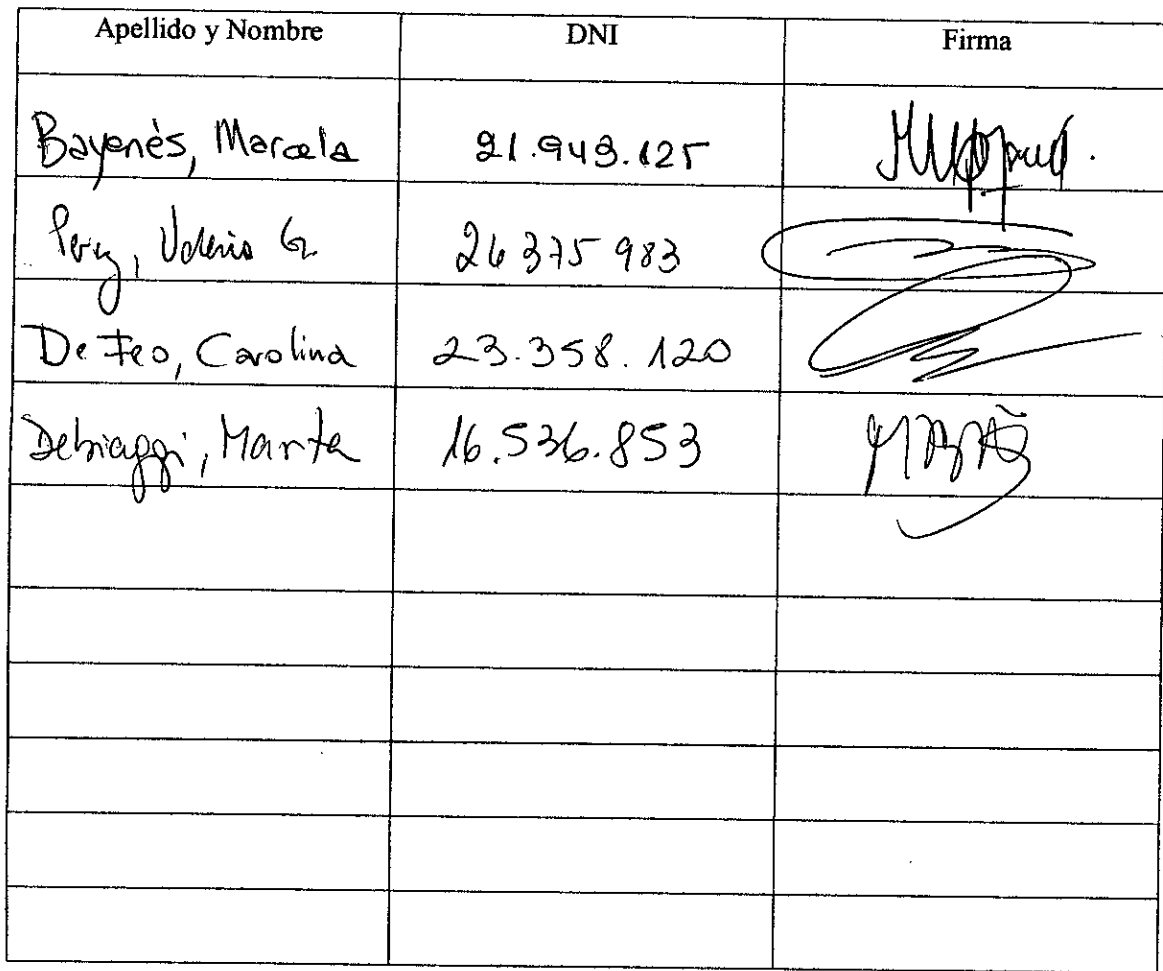 Apellido y Nombre DNI Firma
Bayonés, Marcela 21.943.125
Perez, Valeria G. 26 375 983
De Feo, Carolina 23.358.120
Debiaggi, Marta 16.536.853